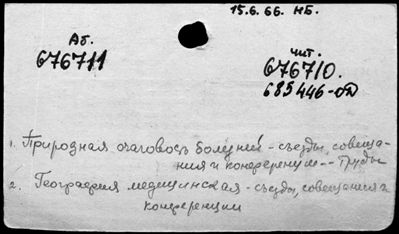 15.6.66. НБ.
Аб.
676711
чит.
676710.
685446-оД
1. Природная очаговость болезней - съезды, совеща-
ния и конференции -- Труды
2. География медицинская - съезды, совещания и
конференции